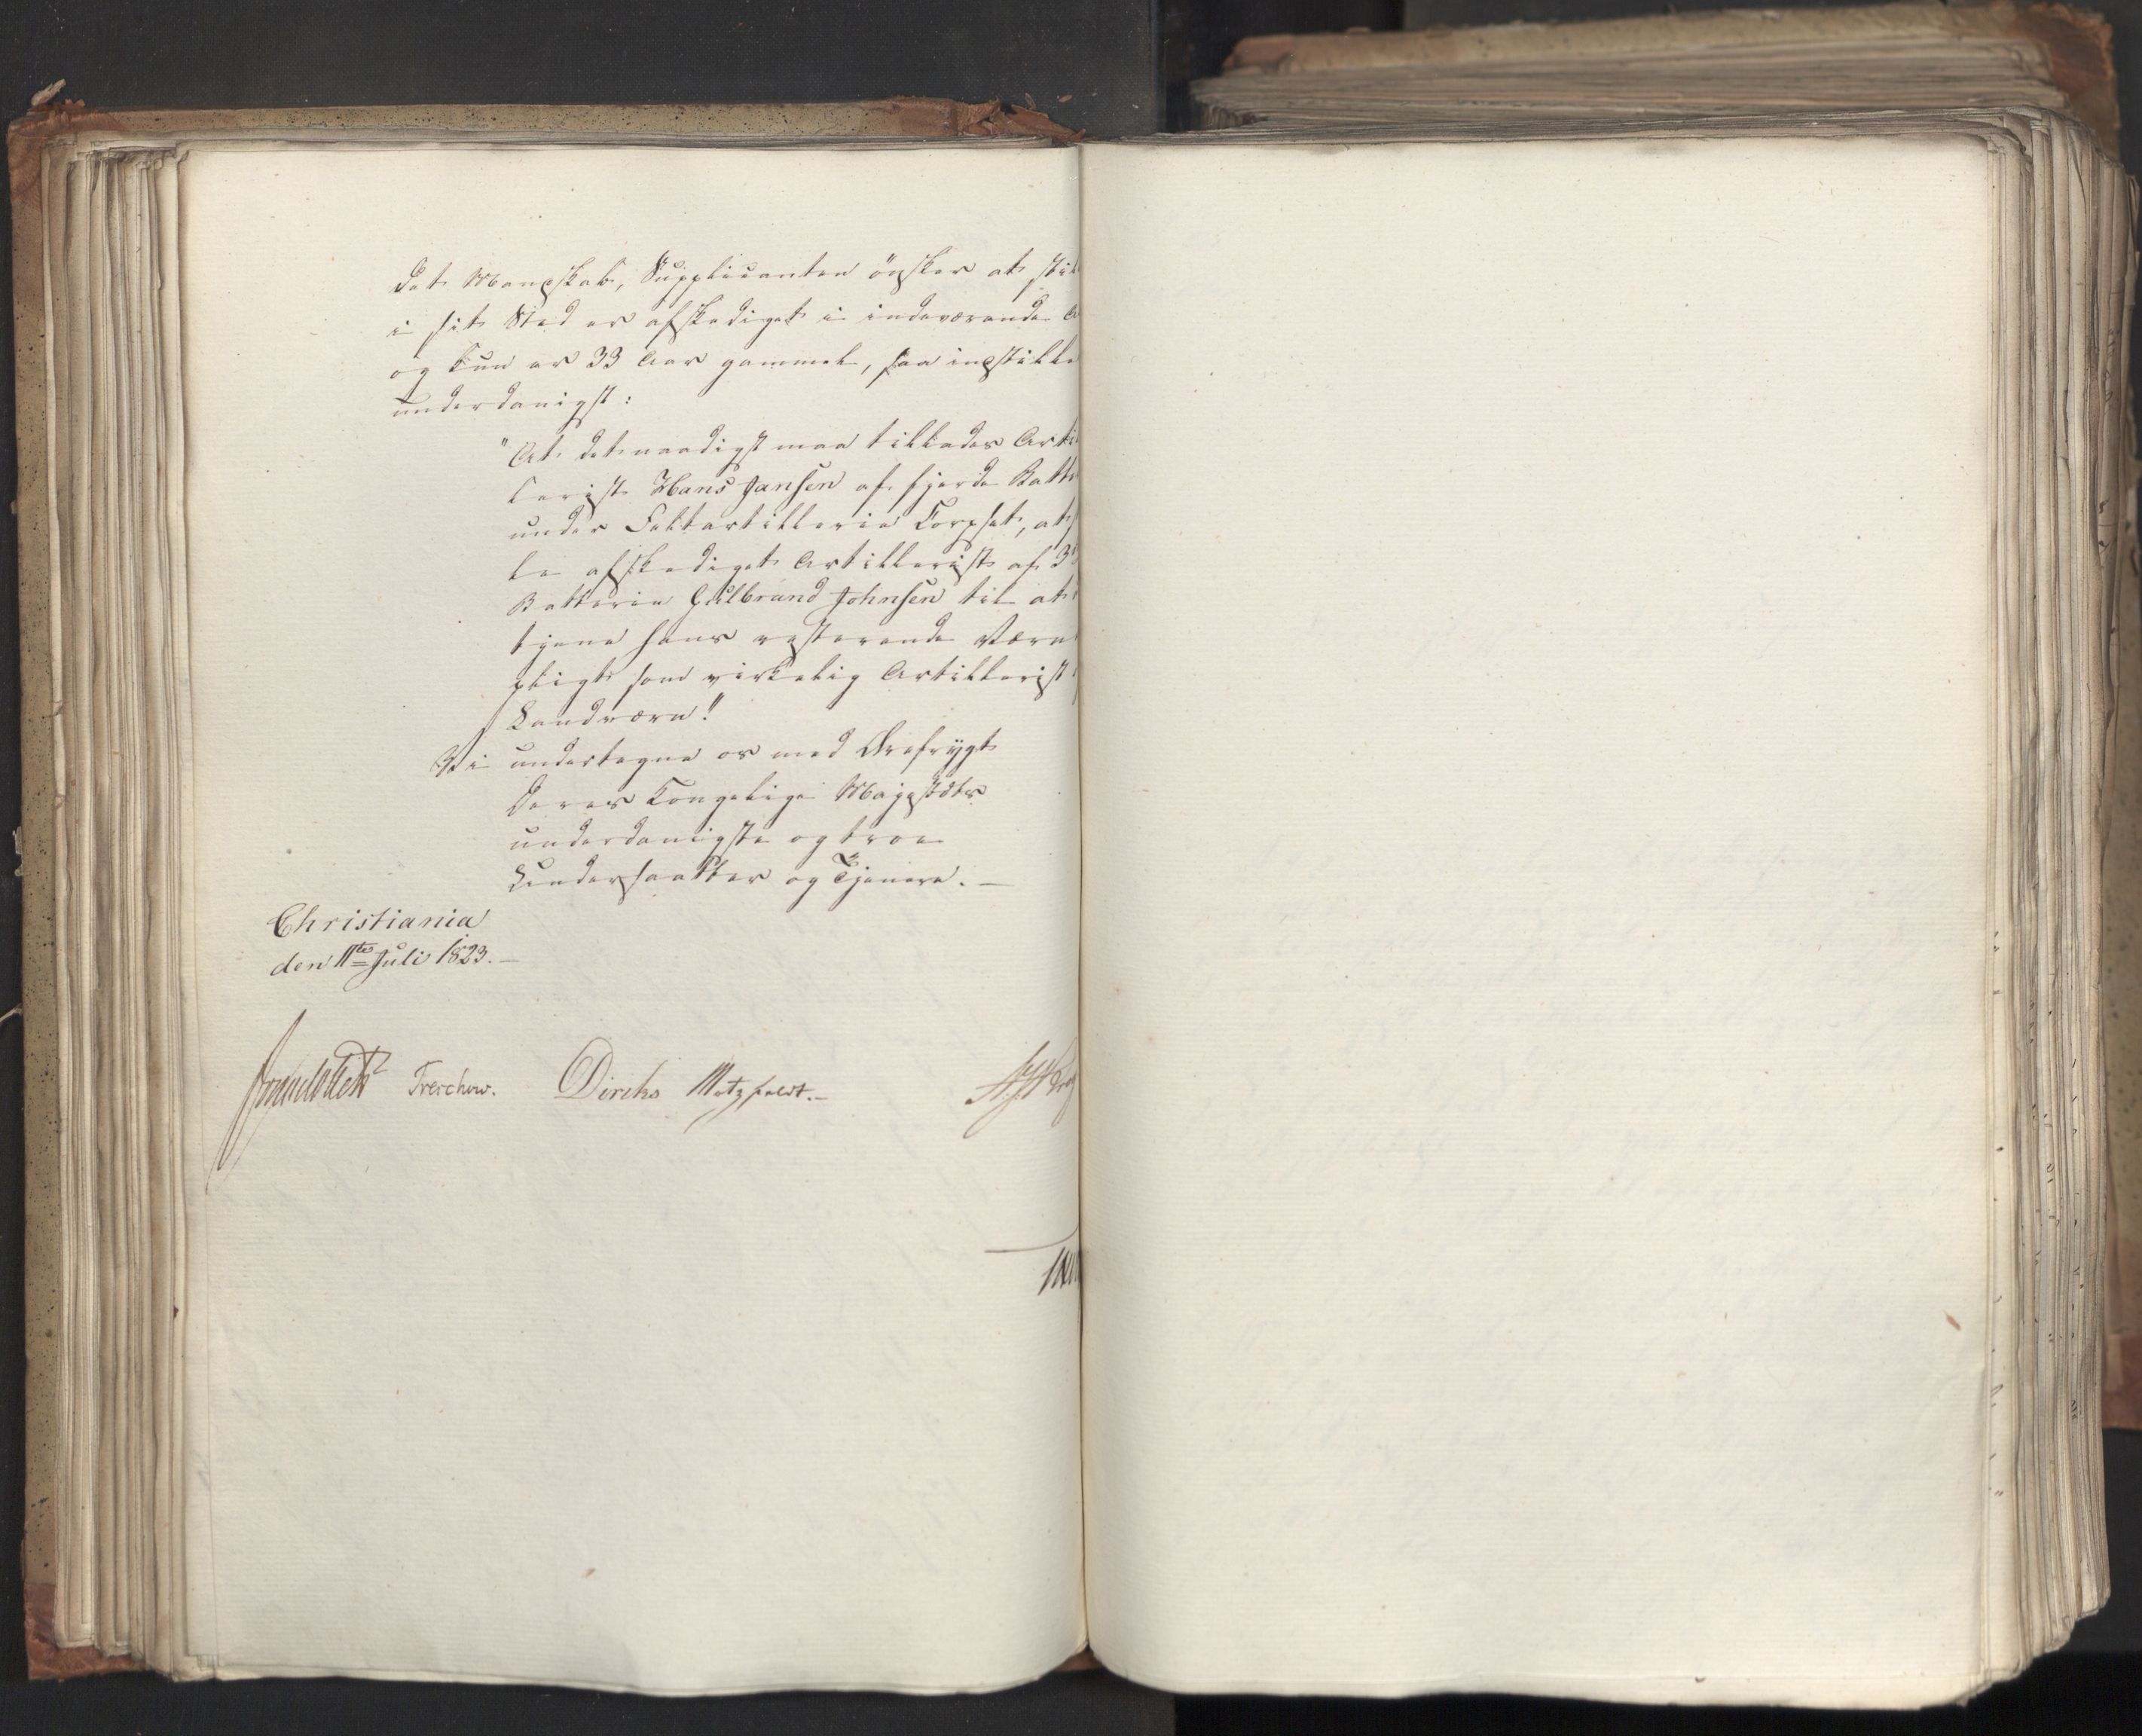 det Mandskab, Supplicanten önsker at stil
i sit Sted er afskediget i indeværende A
og kun er 33 Aar gammel, saa indstilles
underdanigst:
"At det naadigst maa tillades Artil
lerist Hans Jansen af fjerde Batte
under Feltartillerie Corpset, at
le afskediget Artillerist af 3
Batterie Gulbrand Johnsen til at
tjene hans resterende Værne
pligt som virkelig Artillerist
Landværn."
Vi undertegne os med Ærefrygt
Deres Kongelige Majestæts
underdanigste og troe
Undersaatter og Tjenere.—
Christiania
den 11te Juli 1823.—
Treschow. Diriks Motzfeldt.—